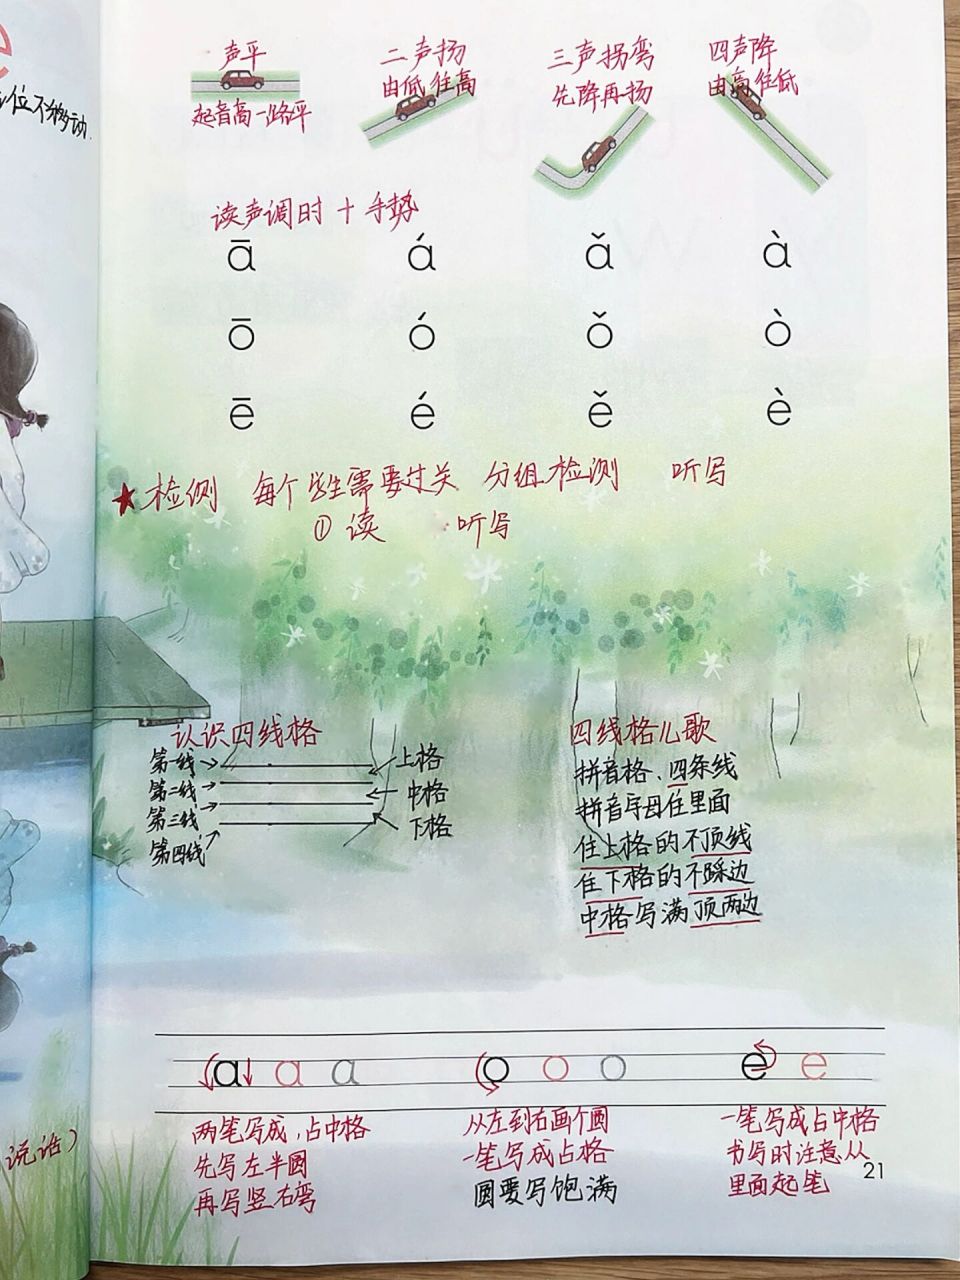 位不移动
说话）
声平
起音高一路平
二声扬
由低往高
三声拐弯
先降再扬
四声降
由高往低
读声调时 + 手势
ā á ǎ à
ō ó ǒ ò
ē é ě è
★检测 每个学生需要过关 分组检测 听写
① 读 听写
认识四线格
第一线
第二线
第三线
第四线
上格
中格
下格
四线格儿歌
拼音格、四条线
拼音字母住里面
住上格的不顶线
住下格的不踩边
中格写满顶两边
a a a o o o e e
两笔写成，占中格
先写左半圆
再写竖右弯
从左到右画个圆
一笔写成占格
圆要写饱满
一笔写成占中格
书写时注意从
里面起笔
21